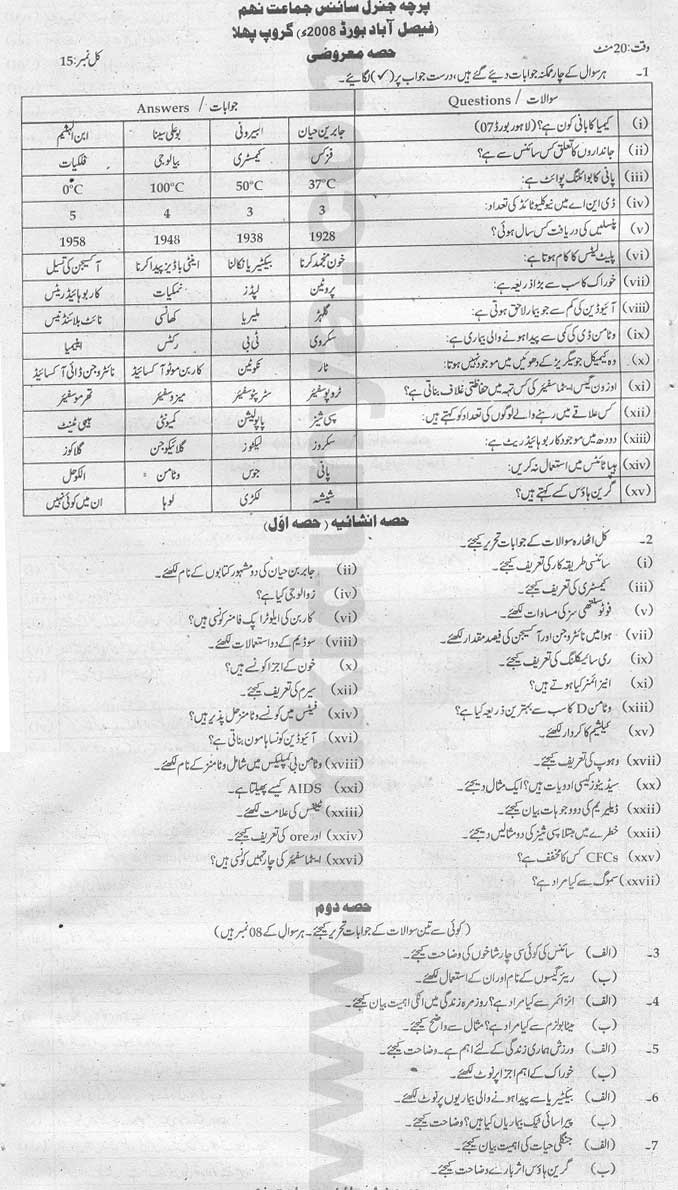 پرچہ جنرل سائنس جماعت نہم
(فیصل آباد بورڈ 2008ء) گروپ پہلا
وقت: 20 منٹ حصہ معروضی کل نمبر: 15
1۔ ہر سوال کے چار ممکنہ جوابات دیئے گئے ہیں، درست جواب پر (✓) لگائیے۔
سوالات / Questions جوابات / Answers
(i) کیمیا کا بانی کون ہے؟ (لاہور بورڈ 07) جابر بن حیان البیرونی بوعلی سینا ابن الہیثم
(ii) جانداروں کا تعلق کس سائنس سے ہے؟ فزکس کیمسٹری بیالوجی فلکیات
(iii) پانی کا بوائلنگ پوائنٹ ہے: 37°C 50°C 100°C 0°C
(iv) ڈی این اے میں نیوکلیوٹائڈ کی تعداد: 3 3 4 5
(v) پنسلین کی دریافت کس سال ہوئی؟ 1928 1938 1948 1958
(vi) پلیٹ لیٹس کا کام ہوتا ہے: خون منجمد کرنا بیکٹیریا نکالنا اینٹی باڈیز پیدا کرنا آکسیجن کی ترسیل
(vii) خوراک کا سب سے بڑا ذریعہ ہے: پروٹین لپڈز نمکیات کاربوہائیڈریٹس
(viii) آئیوڈین کی کمی سے جو بیمار لاحق ہوتی ہے: گلہڑ ملیریا کھانسی نائٹ بلائنڈنیس
(ix) وٹامن ڈی کی کمی سے پیدا ہونے والی بیماری ہے: سکروی ٹی بی رکٹس انیمیا
(x) وہ کیمیکل جو سیگریٹ کے دھوئیں میں موجود نہیں ہوتا: ٹار نکوٹین کاربن مونو آکسائیڈ نائٹروجن ڈائی آکسائیڈ
(xi) اوزون گیس ایٹماسفیئر کی کس تہہ میں حفاظتی غلاف بناتی ہے؟ ٹروپوسفیئر سٹریٹوسفیئر میزوسفیئر تھرموسفیئر
(xii) کسی علاقے میں رہنے والے لوگوں کی تعداد کو کہتے ہیں: سپی شیز پاپولیشن کمیونٹی ہیبی ٹینٹ
(xiii) دودھ میں موجود کاربوہائیڈریٹ ہے: سکروز لیکٹوز گلائیکوجن گلوکوز
(xiv) ہیپاٹائٹس میں استعمال نہ کریں: پانی جوس وٹامن الکوحل
(xv) گرین ہاؤس کسے کہتے ہیں؟ شیشہ لکڑی لوہا ان میں کوئی نہیں
حصہ انشائیہ (حصہ اوّل)
2۔ کل اٹھارہ سوالات کے جوابات تحریر کیجئے۔
(i) سائنسی طریقہ کار کی تعریف کیجئے۔ (ii) جابر بن حیان کی دو مشہور کتابوں کے نام لکھئے۔
(iii) کیمسٹری کی تعریف کیجئے۔ (iv) زوالوجی کیا ہے؟
(v) فوٹوسنتھی سز کی مساوات لکھئے۔ (vi) کاربن کی ایلوٹراپک فامز کونسی ہیں؟
(vii) ہوا میں نائٹروجن اور آکسیجن کی فیصد مقدار لکھئے۔ (viii) سوڈیم کے دو استعمالات لکھئے۔
(ix) ری سائیکلنگ کی تعریف کیجئے۔ (x) خون کے اجزا کونسے ہیں؟
(xi) انیزائمز کیا ہوتے ہیں؟ (xii) سیرم کی تعریف کیجئے۔
(xiii) وٹامن D کا سب سے بہترین ذریعہ کیا ہے؟ (xiv) فیٹس میں کونسے وٹامنز حل پذیر ہیں؟
(xv) کیلشیم کا کردار لکھئے۔ (xvi) آئیوڈین کونسا ہامون بناتی ہے؟
(xvii) وہوپ کی تعریف کیجئے۔ (xviii) وٹامن بی کمپلیکس میں شامل وٹامنز کے نام لکھئے۔
(xx) سیڈیٹوز کیسی ادویات ہیں؟ ایک مثال دیجئے۔ (xxi) AIDS کیسے پھیلتا ہے۔
(xxii) ڈیلیریم کی دو وجوہات بیان کیجئے۔ (xxiii) ٹیٹنس کی علامت لکھئے۔
(xxii) خطرے میں مبتلا سپی شیز کی دو مثالیں دیجئے۔ (xxiv) اور ore کی تعریف کیجئے۔
(xxv) CFCs کس کا مخفف ہے؟ (xxvi) ایٹماسفیئر کی چار تہیں کونسی ہیں؟
(xxvii) سموگ سے کیا مراد ہے؟
حصہ دوم
(کوئی سے تین سوالات کے جوابات تحریر کیجئے۔ ہر سوال کے 08 نمبر ہیں)
3۔ (الف) سائنس کی کوئی سی چار شاخوں کی وضاحت کیجئے۔
(ب) ریئر گیسوں کے نام اور ان کے استعمال لکھئے۔
4۔ (الف) انزائمز سے کیا مراد ہے؟ روزمرہ زندگی میں انکی اہمیت بیان کیجئے۔
(ب) میٹابولزم سے کیا مراد ہے؟ مثال سے واضح کیجئے۔
5۔ (الف) ورزش ہماری زندگی کے لئے اہم ہے۔ وضاحت کیجئے۔
(ب) خوراک کے اہم اجزا پر نوٹ لکھئے۔
6۔ (الف) بیکٹیریا سے پیدا ہونے والی بیماریوں پر نوٹ لکھئے۔
(ب) پیراسائی ٹیک بیماریاں کیا ہیں؟ وضاحت کیجئے۔
7۔ (الف) جنگلی حیات کی اہمیت بیان کیجئے۔
(ب) گرین ہاؤس اثر بارے وضاحت کیجئے۔
www.ilmkidunya.com